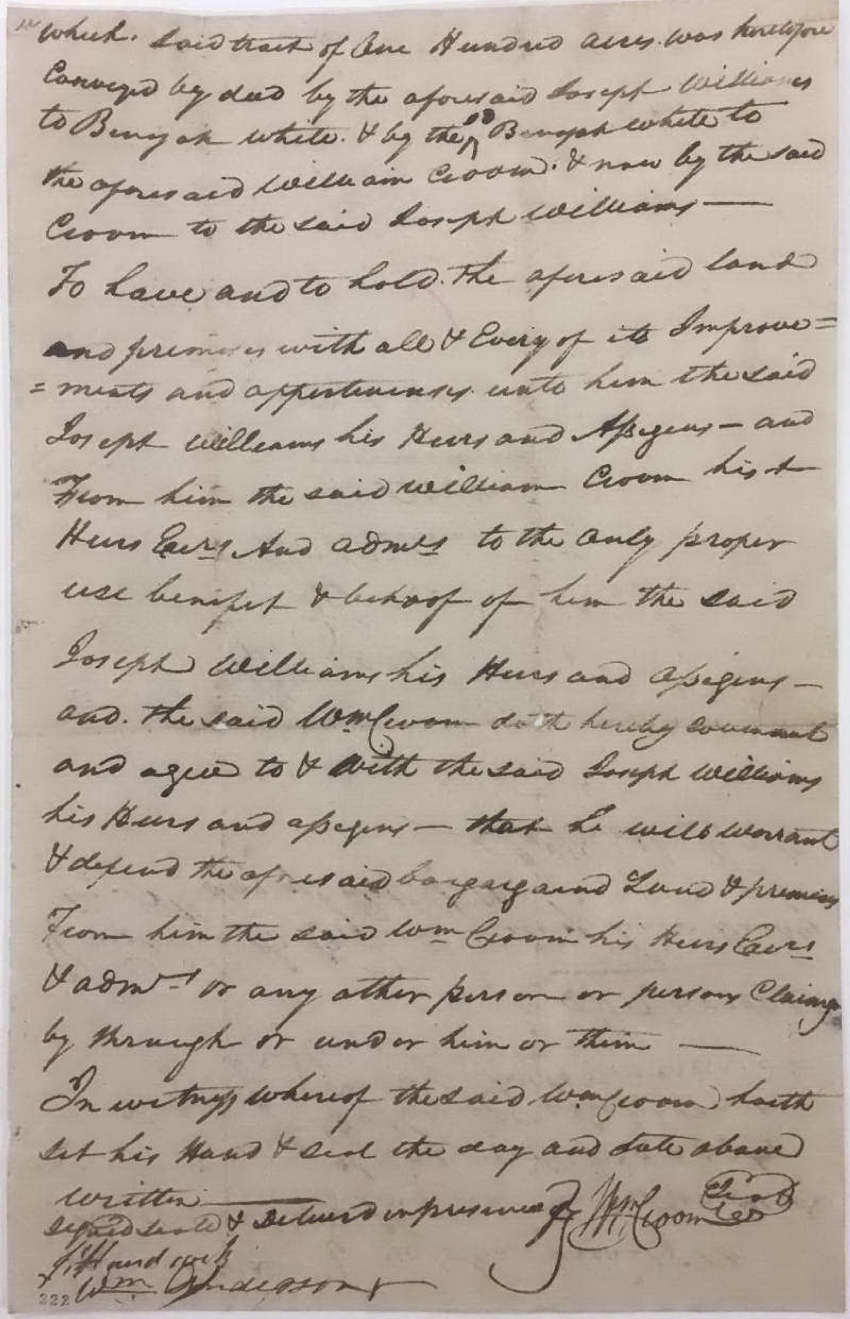 which said tract of One Hundred acres was heretofore
Conveyd by deed by the aforesaid Joseph Williams
to Benajah white. & by the sd Benajah white to
the aforesaid William Croom. & now by the said
Croom to the said Joseph Williams —
To have and to hold the aforesaid land
and premises with all & Every of its Improve=
=ments and appertinenses unto him the said
Joseph Williams his Heirs and Assigens — and
From him the said William Croom his
Heirs Exrs And admrs to the only proper
use benifet & behoof of him the said
Joseph Williams his Heirs and assigens —
and. the said Wm Croom doth hereby covenant
and agree to & With the said Joseph Williams
his Heirs and assegens — that he will warrant
& defend the aforesaid bargargaind Land & premises
From him the said Wm Croom his Heirs Exrs
& admrs or any other person or persons Claimg
by through or under him or them —
In witness whereof the said Wm Croom hath
set his Hand & seal the day and date above
written
Signed seald & deliverd in presence of Wm Croom Seal
Wm Anderson
222